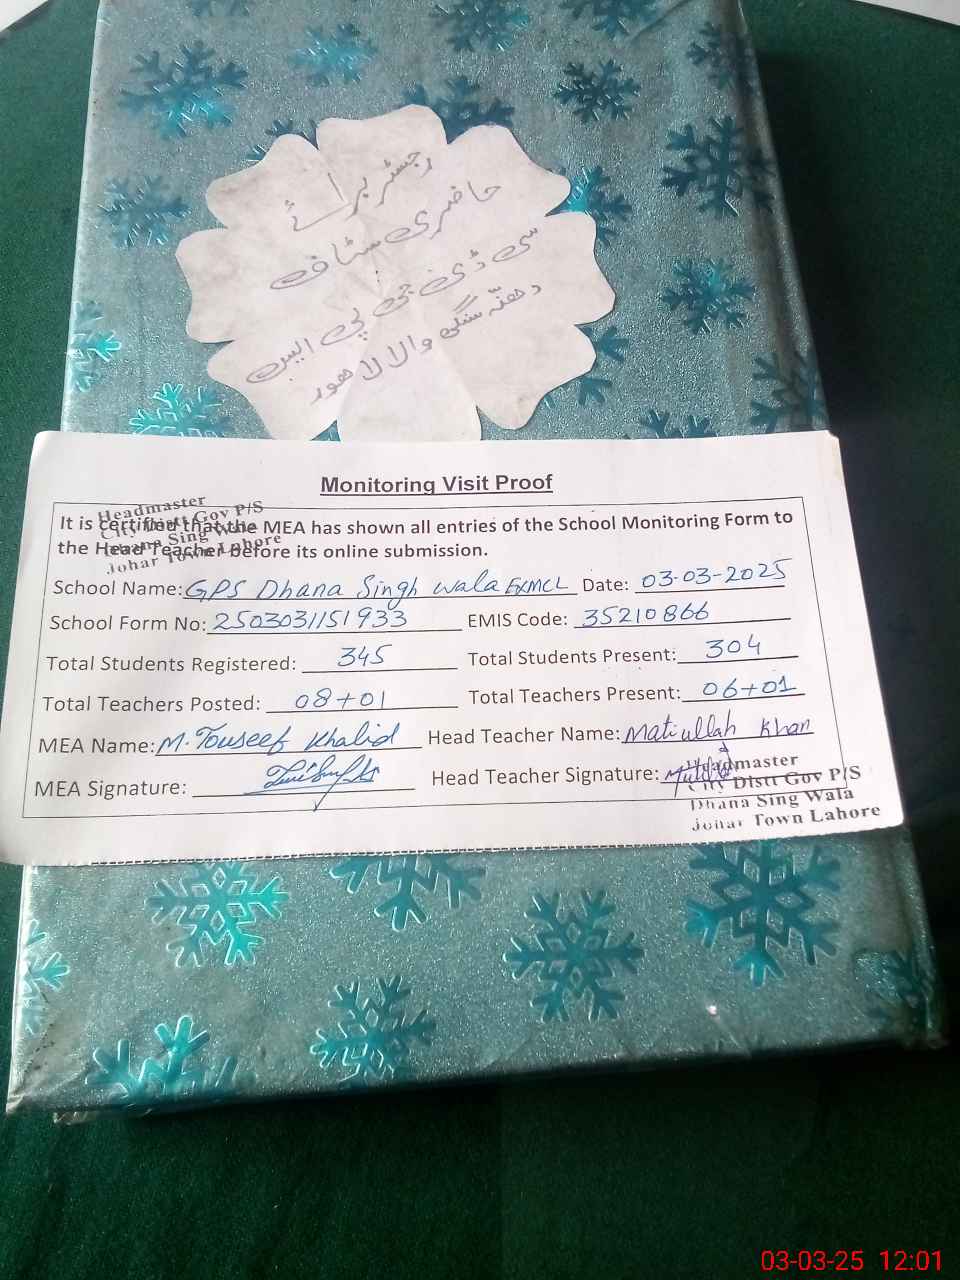 رجسٹر برائے
حاضری سٹاف
سی ڈی جی پی ایس
دھنہ سنگھ والا لاہور
Monitoring Visit Proof
Headmaster
City Distt Gov P/S
Dhana Sing Wala
Johar Town Lahore
It is certified that the MEA has shown all entries of the School Monitoring Form to
the Head Teacher before its online submission.
School Name: GPS Dhana Singh wala EXMCL Date: 03-03-2025
School Form No: 2503031151933 EMIS Code: 35210866
Total Students Registered: 345 Total Students Present: 304
Total Teachers Posted: 08+01 Total Teachers Present: 06+01
MEA Name: M. Touseef Khalid Head Teacher Name: Matiullah Khan
MEA Signature: Head Teacher Signature:
Headmaster
City Distt Gov P/S
Dhana Sing Wala
Johar Town Lahore
03-03-25 12:01